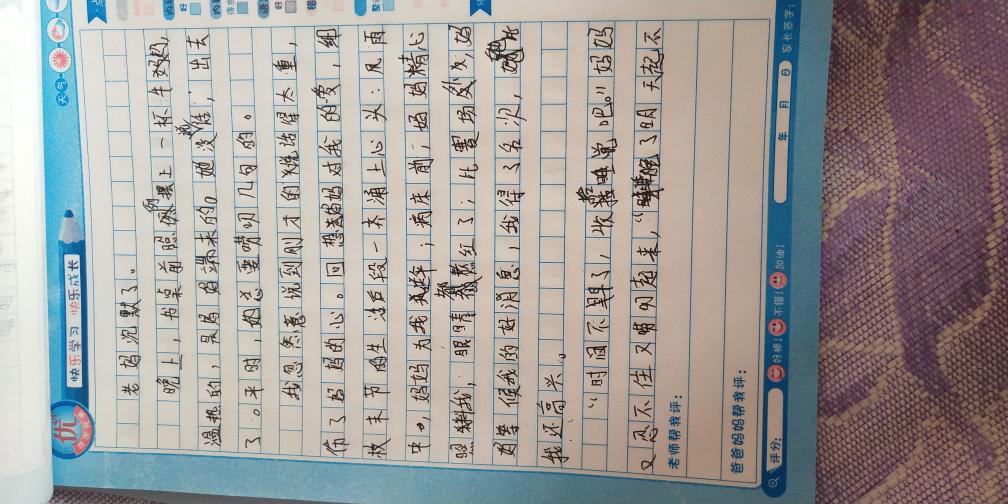 天气
快乐学习 快乐成长
优
老妈沉默了。
晚上,书桌前照例摆上一杯牛奶,
温热的,是妈妈端来的。她没说,出去
了。平时,她总要唠叨几句的。
我忽然意识到刚才的话说得太重,
伤了妈妈的心。回想妈妈对我的爱,细
枝末节的生活片段一齐涌上心头:风雨
中,妈妈为我
;病床前,妈妈精心
照料我,眼睛都熬红了;比赛场
妈
等候我的好消息,我得了名次,她比
我还高兴。
“时间不早了,收
吧。”妈妈
又忍不住又唠叨起来,“
了明天起不
老师帮我评:
爸爸妈妈帮我评:
评分:
好棒!
不错!
加油!
年 月 日
家长签字: